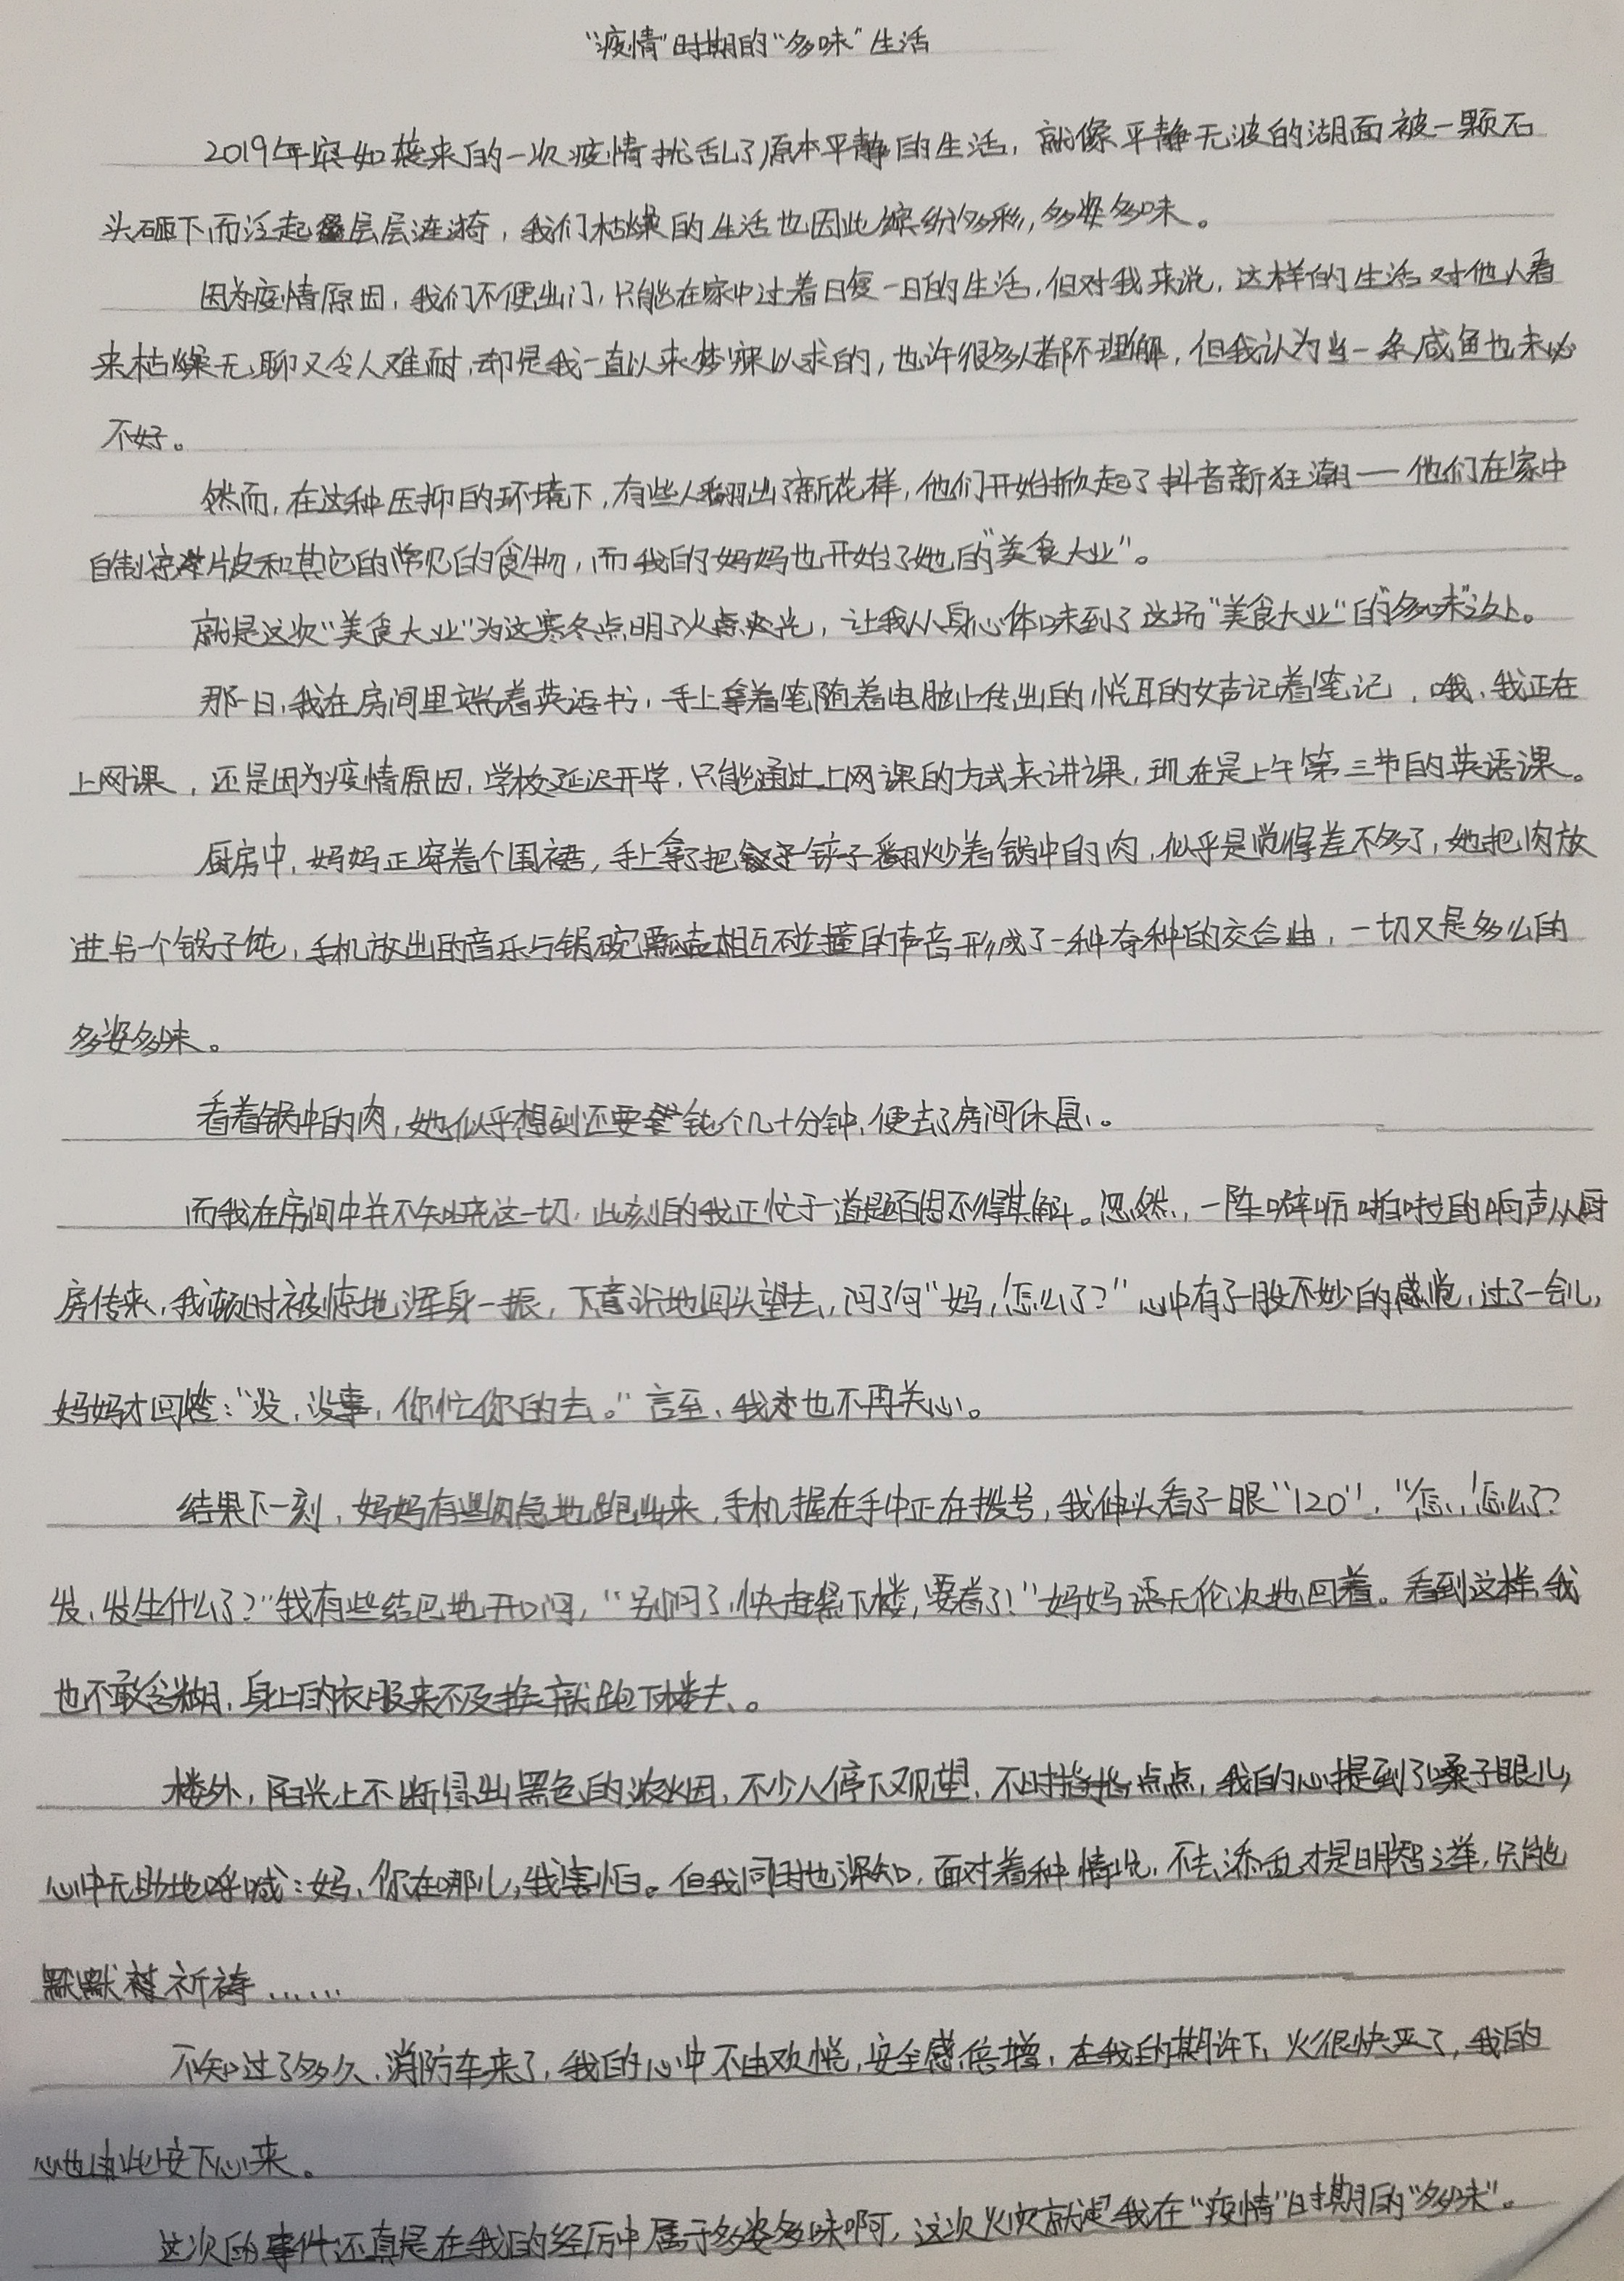 “疫情”时期的“多味”生活
2019年突如袭来的一次疫情扰乱了原本平静的生活，就像平静无波的湖面被一颗石
头砸下而泛起层层涟漪，我们枯燥的生活也因此缤纷多彩，多姿多味。
因为疫情原因，我们不便出门，只能在家中过着日复一日的生活，但对我来说，这样的生活对他人看
来枯燥无聊又令人难耐，却是我一直以来梦寐以求的，也许很多人都不理解，但我认为当一条咸鱼也未必
不好。
然而，在这种压抑的环境下，有些人翻出了新花样，他们开始掀起了抖音新狂潮——他们在家中
自制凉皮和其它的常见的食物，而我的妈妈也开始了她的“美食大业”。
就是这次“美食大业”为这寒冬点明了火光，让我从身心体味到了这场“美食大业”的“多味”之处。
那一日，我在房间里端着英语书，手上拿着笔随着电脑上传出的悦耳的女声记着笔记，哦，我正在
上网课，还是因为疫情原因，学校延迟开学，只能通过上网课的方式来讲课，现在是上午第三节的英语课。
厨房中，妈妈正穿着个围裙，手上拿了把铲子翻炒着锅中的肉，似乎是觉得差不多了，她把肉放
进另一个锅子炖，手机放出的音乐与锅碗瓢盆相互碰撞的声音形成了一种奇种的交合曲，一切又是多么的
多姿多味。
看着锅中的肉，她似乎想到还要炖个几十分钟，便去了房间休息。
而我在房间中并不知晓这一切，此刻的我正忙于一道题百思不得其解。忽然，一阵噼呖啪啦的响声从厨
房传来，我顿时被惊地浑身一振，下意识地回头望去，问了句“妈，怎么了？”心中有了一股不妙的感觉，过了一会儿，
妈妈才回答：“没，没事，你忙你的去。”言至，我也不再关心。
结果下一刻，妈妈有些慌急地跑出来，手机握在手中正在拨号，我伸头看了一眼“120”，“怎，怎么了？
发，发生什么了？”我有些结巴地开口问，“别问了，快赶紧下楼，要着了！”妈妈语无伦次地回着。看到这样，我
也不敢含糊，身上的衣服来不及换就跑下楼去。
楼外，阳光上不断冒出黑色的浓烟，不少人停下观望，不时指指点点，我的心提到了嗓子眼儿，
心中无助地呼喊：妈，你在哪儿，我害怕。但我同时也深知，面对着种情况，不去添乱才是明智之举，只能
默默祈祷……
不知过了多久，消防车来了，我的心中不由欢悦，安全感倍增，在我的期许下，火很快灭了，我的
心也由此安下心来。
这次的事件还真是在我的经历中属于多姿多味啊，这次火灾就是我在“疫情”时期的“多味”。